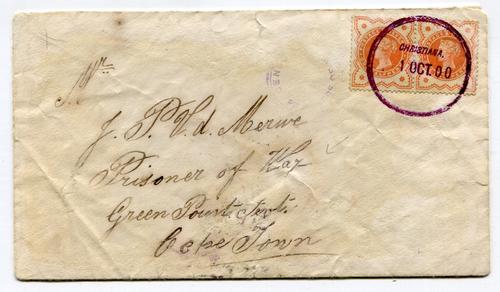 CHRISTIANA.
1 OCT.00
Mr.
J. P. V. d. Merwe
Prisoner of War
Green Point,
Cape Town